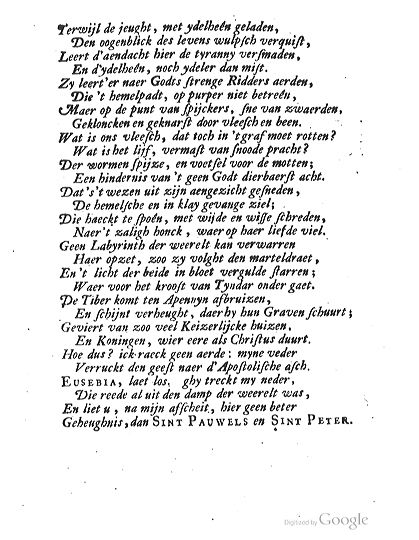 Terwijl de jeught, met ydelheên geladen,
Den oogenblick des levens wulpsch verquist,
Leert d'aendacht hier de tyranny versmaden,
En d'ydelheên, noch ydeler dan mist.
Zy leert'er naer Godts strenge Ridders aerden,
Die 't hemelpadt, op purper niet betreên,
Maer op de punt van spijckers, sne van zwaerden,
Gekloncken en geknarst door vleesch en been.
Wat is ons vleesch, dat toch in 't graf moet rotten?
Wat is het lijf, vermast van snoode pracht?
Der wormen spijze, en voetsel voor de motten;
Een hindernis van 't geen Godt dierbaerst acht.
Dat 's 't wezen uit zijn aengezicht gesneden,
De hemelsche en in klay gevange ziel;
Die haeckt te spoên, met wijde en wisse schreden,
Naer 't zaligh honck, waer op haer liefde viel.
Geen Labyrinth der weerelt kan verwarren
Haer opzet, zoo zy volght den marteldraet,
En 't licht der beide in bloet vergulde starren;
Waer voor het kroost van Tyndar onder gaet.
De Tiber komt ten Apennyn afbruizen,
En schijnt verheught, daer hy hun Graven schuurt;
Geviert van zoo veel Keizerlijcke huizen,
En Koningen, wier eere als Christus duurt.
Hoe dus? ick raeck geen aerde: myne veder
Verruckt den geest naer d'Apostolische asch.
EUSEBIA, laet los, ghy treckt my neder,
Die reede al uit den damp der weerelt was,
En liet u, na mijn afscheit, hier geen beter
Geheughnis, dan SINT PAUWELS en SINT PETER.
Digitized by Google